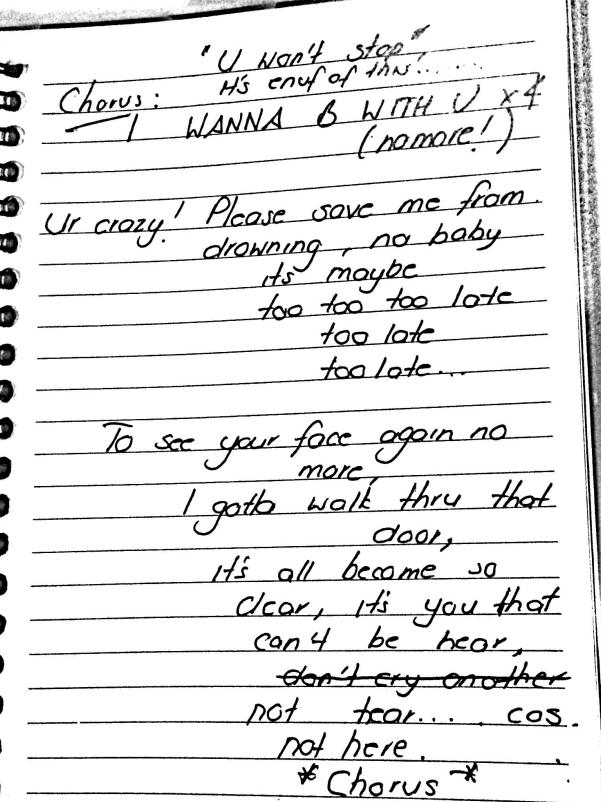 "U won't stop"
It's enuf of this......
Chorus:
I WANNA B WITH U x4
(no more!)
Ur crazy! Please save me from
drowning, no baby
its maybe
too too too late
too late
too late...
To see your face again no
more,
I gotta walk thru that
door,
it's all become so
clear, it's you that
can4 be hear,
don't cry another
not tear.... cos.
not here.
* Chorus *